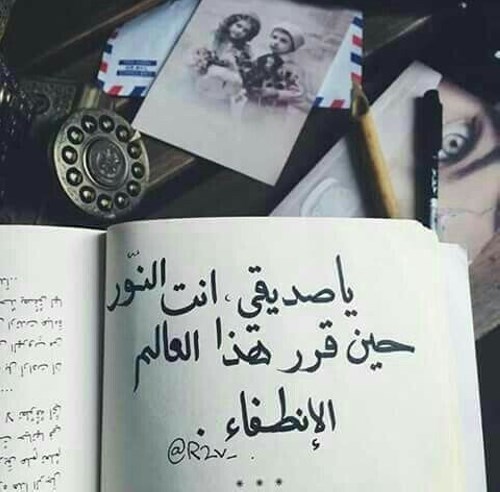 يا صديقي، انت النّور
حين قرر هذا العالم
الإنطفاء .
@R2v_ .
...